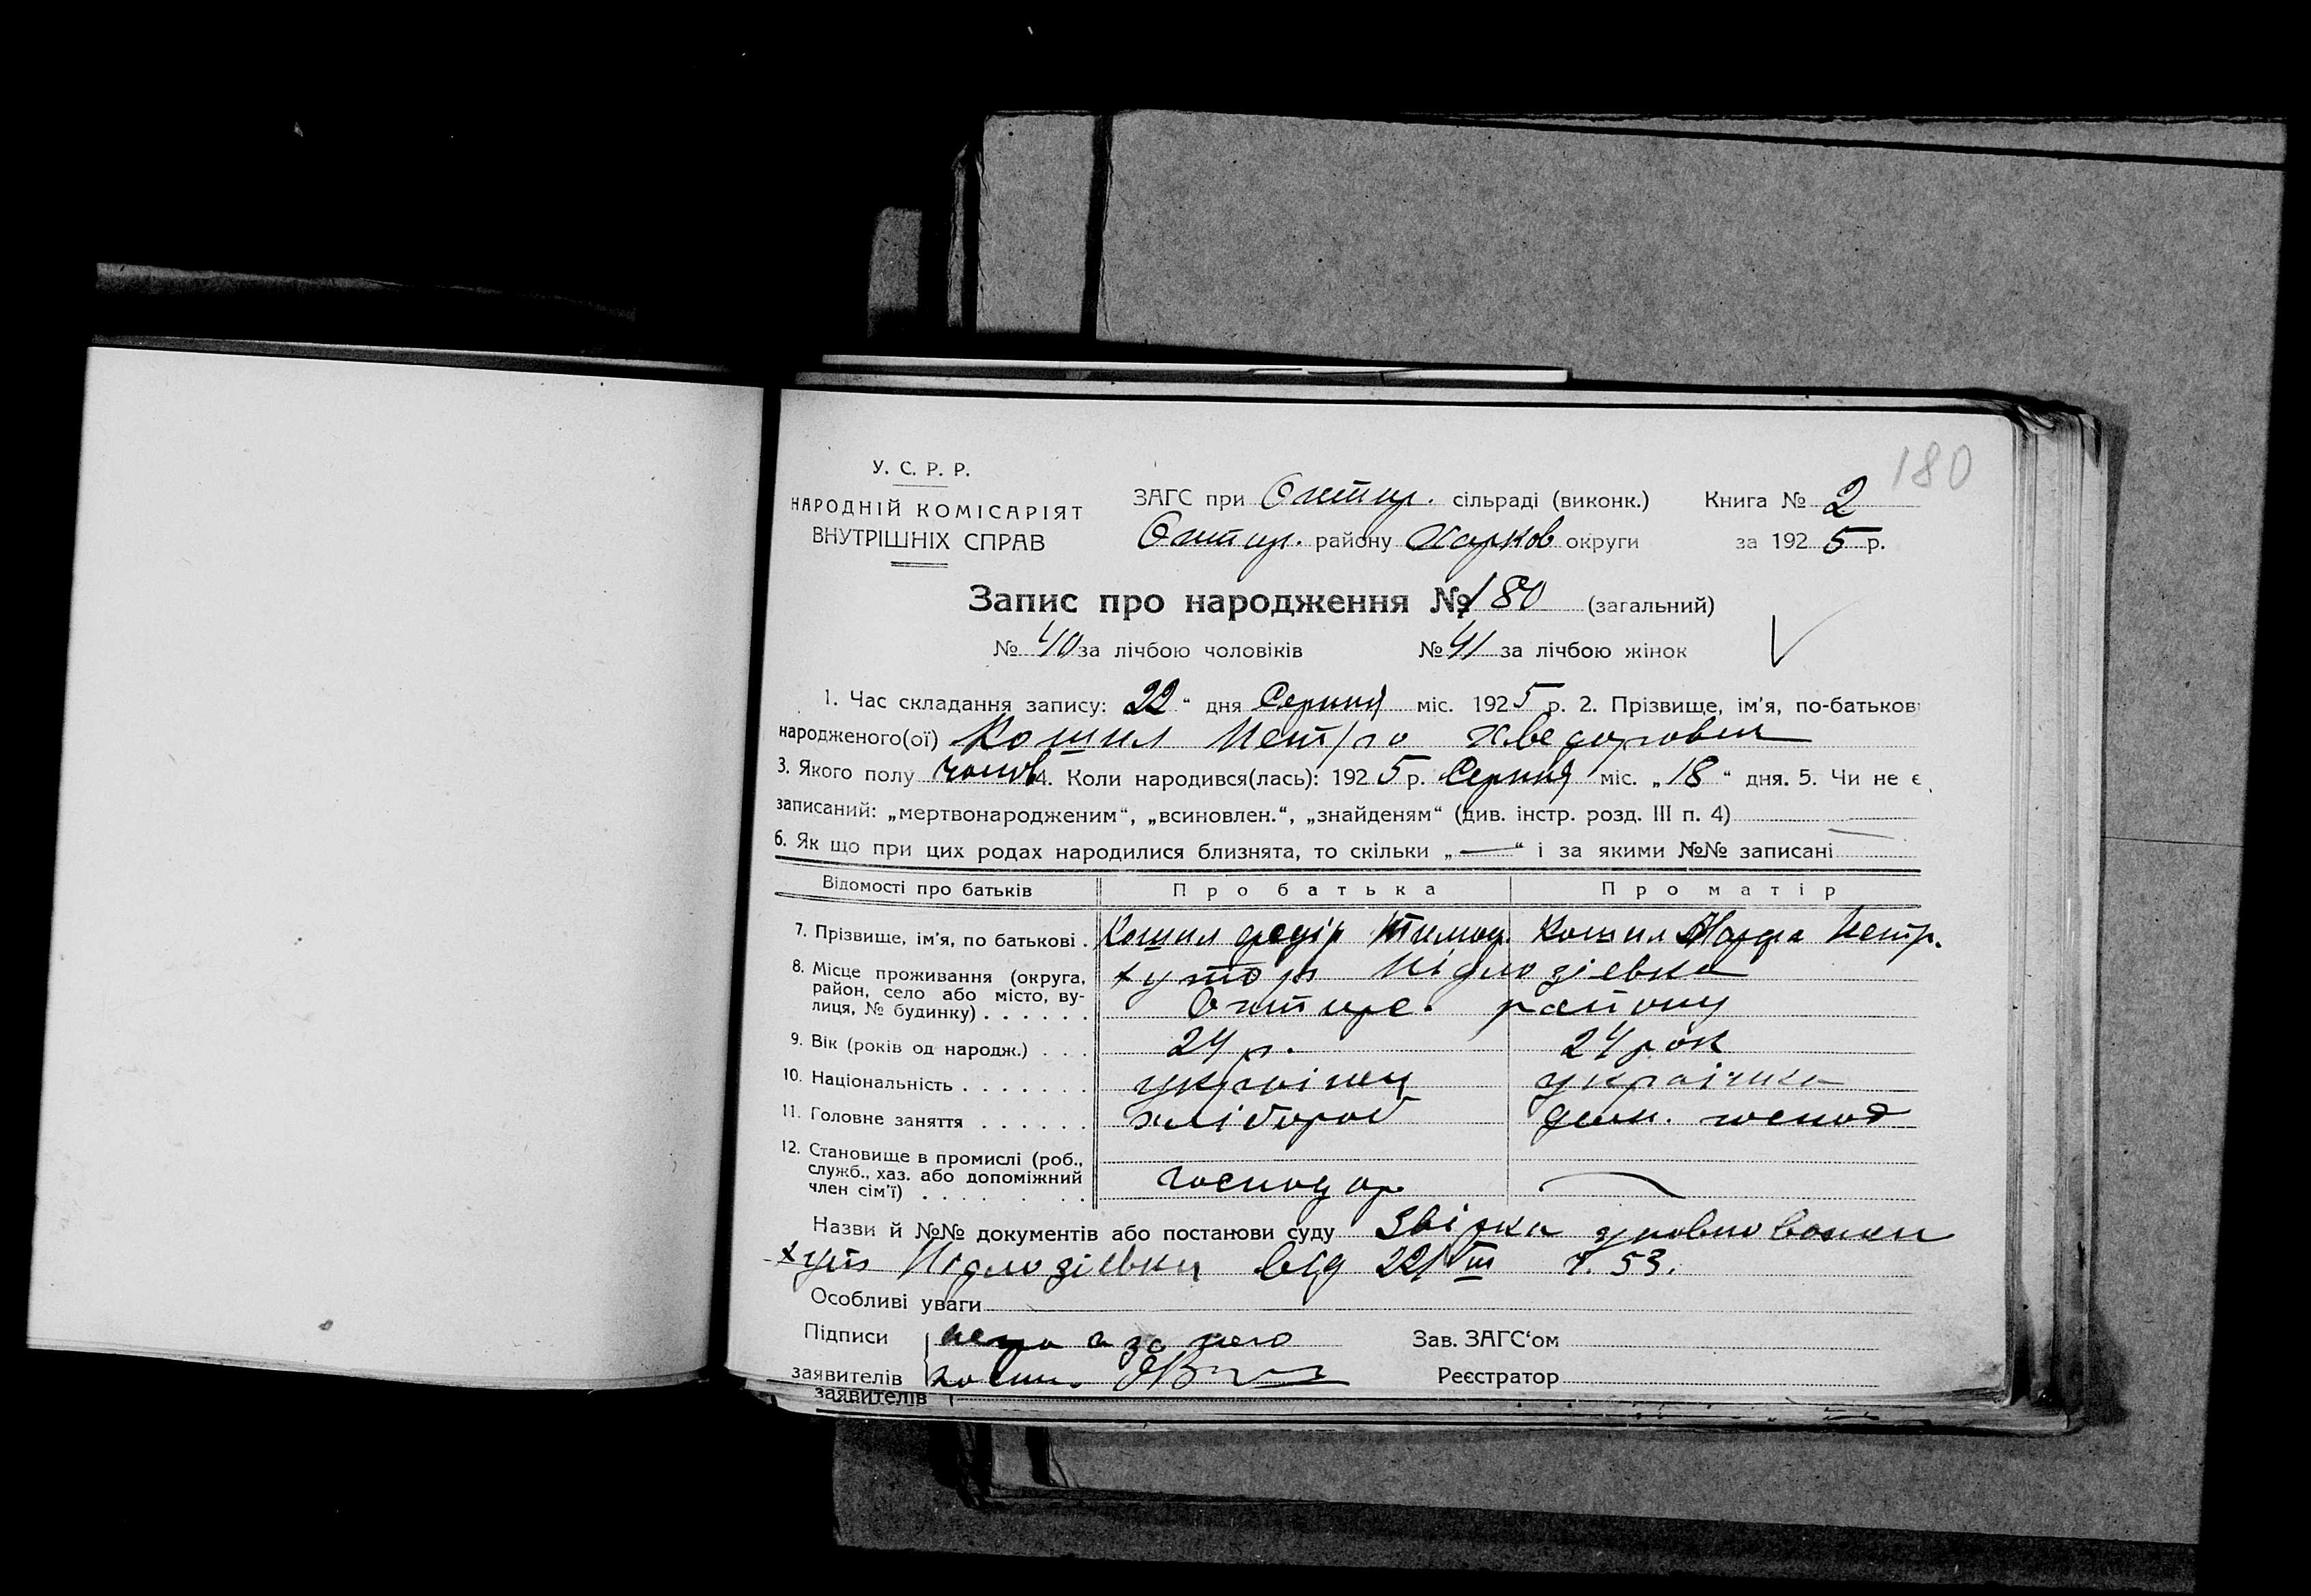 180
У. С. Р. Р.
НАРОДНІЙ КОМІСАРІЯТ
ВНУТРІШНІХ СПРАВ
ЗАГС при Охтир. сільраді (виконк.) Книга № 2
Охтир. району Харков округи за 1925 р.
Запис про народження № 180 (загальний)
№ 40 за лічбою чоловіків № 41 за лічбою жінок
1. Час складання запису: 22 “ дня Серпня міс. 1925 р. 2. Прізвище, ім'я, по-батькові
народженого(ої) Кошил Петро Хведорович
3. Якого полу чолов 4. Коли народився(лась): 1925 р. Серпня міс. „18“ дня. 5. Чи не є
записаний: „мертвонародженим“, „всиновлен.“, „знайденям“ (див. інстр. розд. III п. 4) —
6. Як що при цих родах народилися близнята, то скільки „—“ і за якими №№ записані
Відомості про батьків Про батька Про матір
7. Прізвище, ім'я, по батькові . Кошил Федір Тимоф. Кошил Марфа Петр.
8. Місце проживання (округа, хутор Підлозіевка
район, село або місто, ву-
лиця, № будинку) . . . . . . Охтирс. району
9. Вік (років од народж.) . . . 24 р. 24 рок
10. Національність . . . . . . . українец українка
11. Головне заняття . . . . . . хлібороб дом. господ
12. Становище в промислі (роб.,
служб., хаз. або допоміжний
член сім'ї) . . . . . господар —
Назви й №№ документів або постанови суду Звістка уповноважен
хут Підлозіевки від 22/VIII ч. 53.
Особливі уваги
Підписи а за него
заявителів
Зав. ЗАГС'ом
Реєстратор
заявителів